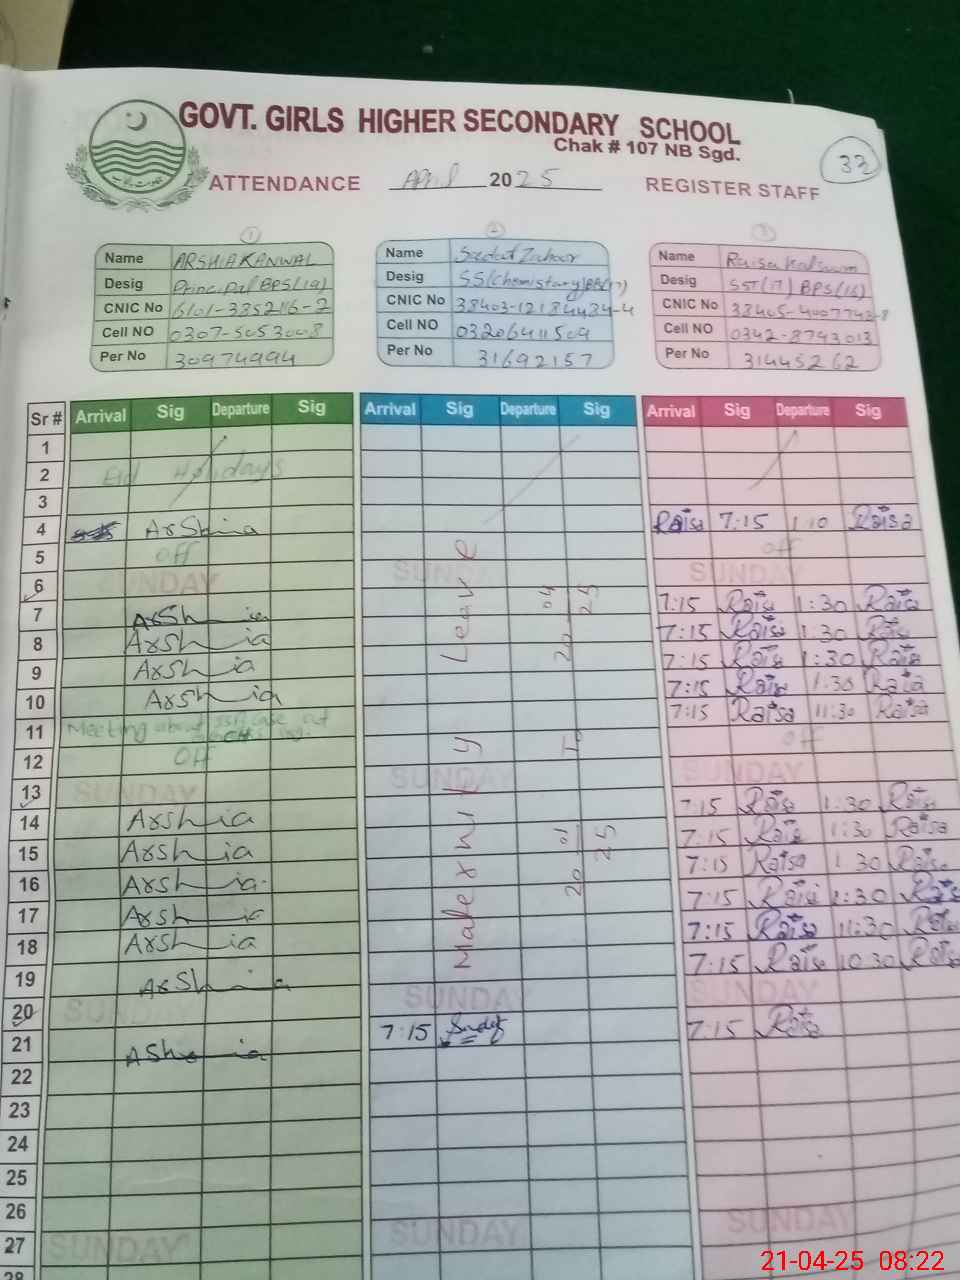 GOVT. GIRLS HIGHER SECONDARY SCHOOL
Chak # 107 NB Sgd.
33
ATTENDANCE April 2025 REGISTER STAFF
1 2 3
Name ARSHIA KANWAL
Desig Principal BPS(19)
CNIC No 6101-3852116-2
Cell NO 0307-5053008
Per No 30974994
Name Sadaf Zahoor
Desig SS(Chemistary)BPS(17)
CNIC No
Cell NO 03206411509
Per No 31692157
Name Raisa Kalsoom
Desig SST(IT) BPS(16)
CNIC No 38405-4007742-8
Cell NO 0342-8743013
Per No 31445262
Sr # Arrival Sig Departure Sig Arrival Sig Departure Sig Arrival Sig Departure Sig
1
2 Eid Holidays
3
4 Arshia Raisa 7:15 1:10 Raisa
5 off off
6 SUNDAY SUNDAY SUNDAY
7 Arshia 7:15 Raisa 1:30 Raisa
8 Arshia 7:15 Raisa 1:30 Raisa
9 Arshia 7:15 Raisa 1:30 Raisa
10 Arshia 7:15 Raisa 1:30 Raisa
11 Meeting about 7:15 Raisa 11:30 Raisa
12 Off off
13 SUNDAY SUNDAY SUNDAY
14 Arshia 7:15 Raisa 1:30 Raisa
15 Arshia 7:15 Raisa 1:30 Raisa
16 Arshia 7:15 Raisa 1 30 Raisa
17 Arshia 7:15 Raisa 1:30 Raisa
18 Arshia 7:15 Raisa 11:30 Raisa
19 Arshia 7:15 Raisa 10 30 Raisa
20 SUNDAY SUNDAY SUNDAY
21 Ashia 7:15 Sadaf 7:15 Raisa
22
23
24
25
26
27 SUNDAY SUNDAY SUNDAY
28
Maternity Leave
20 01 25 To 20 04 25
21-04-25 08:22